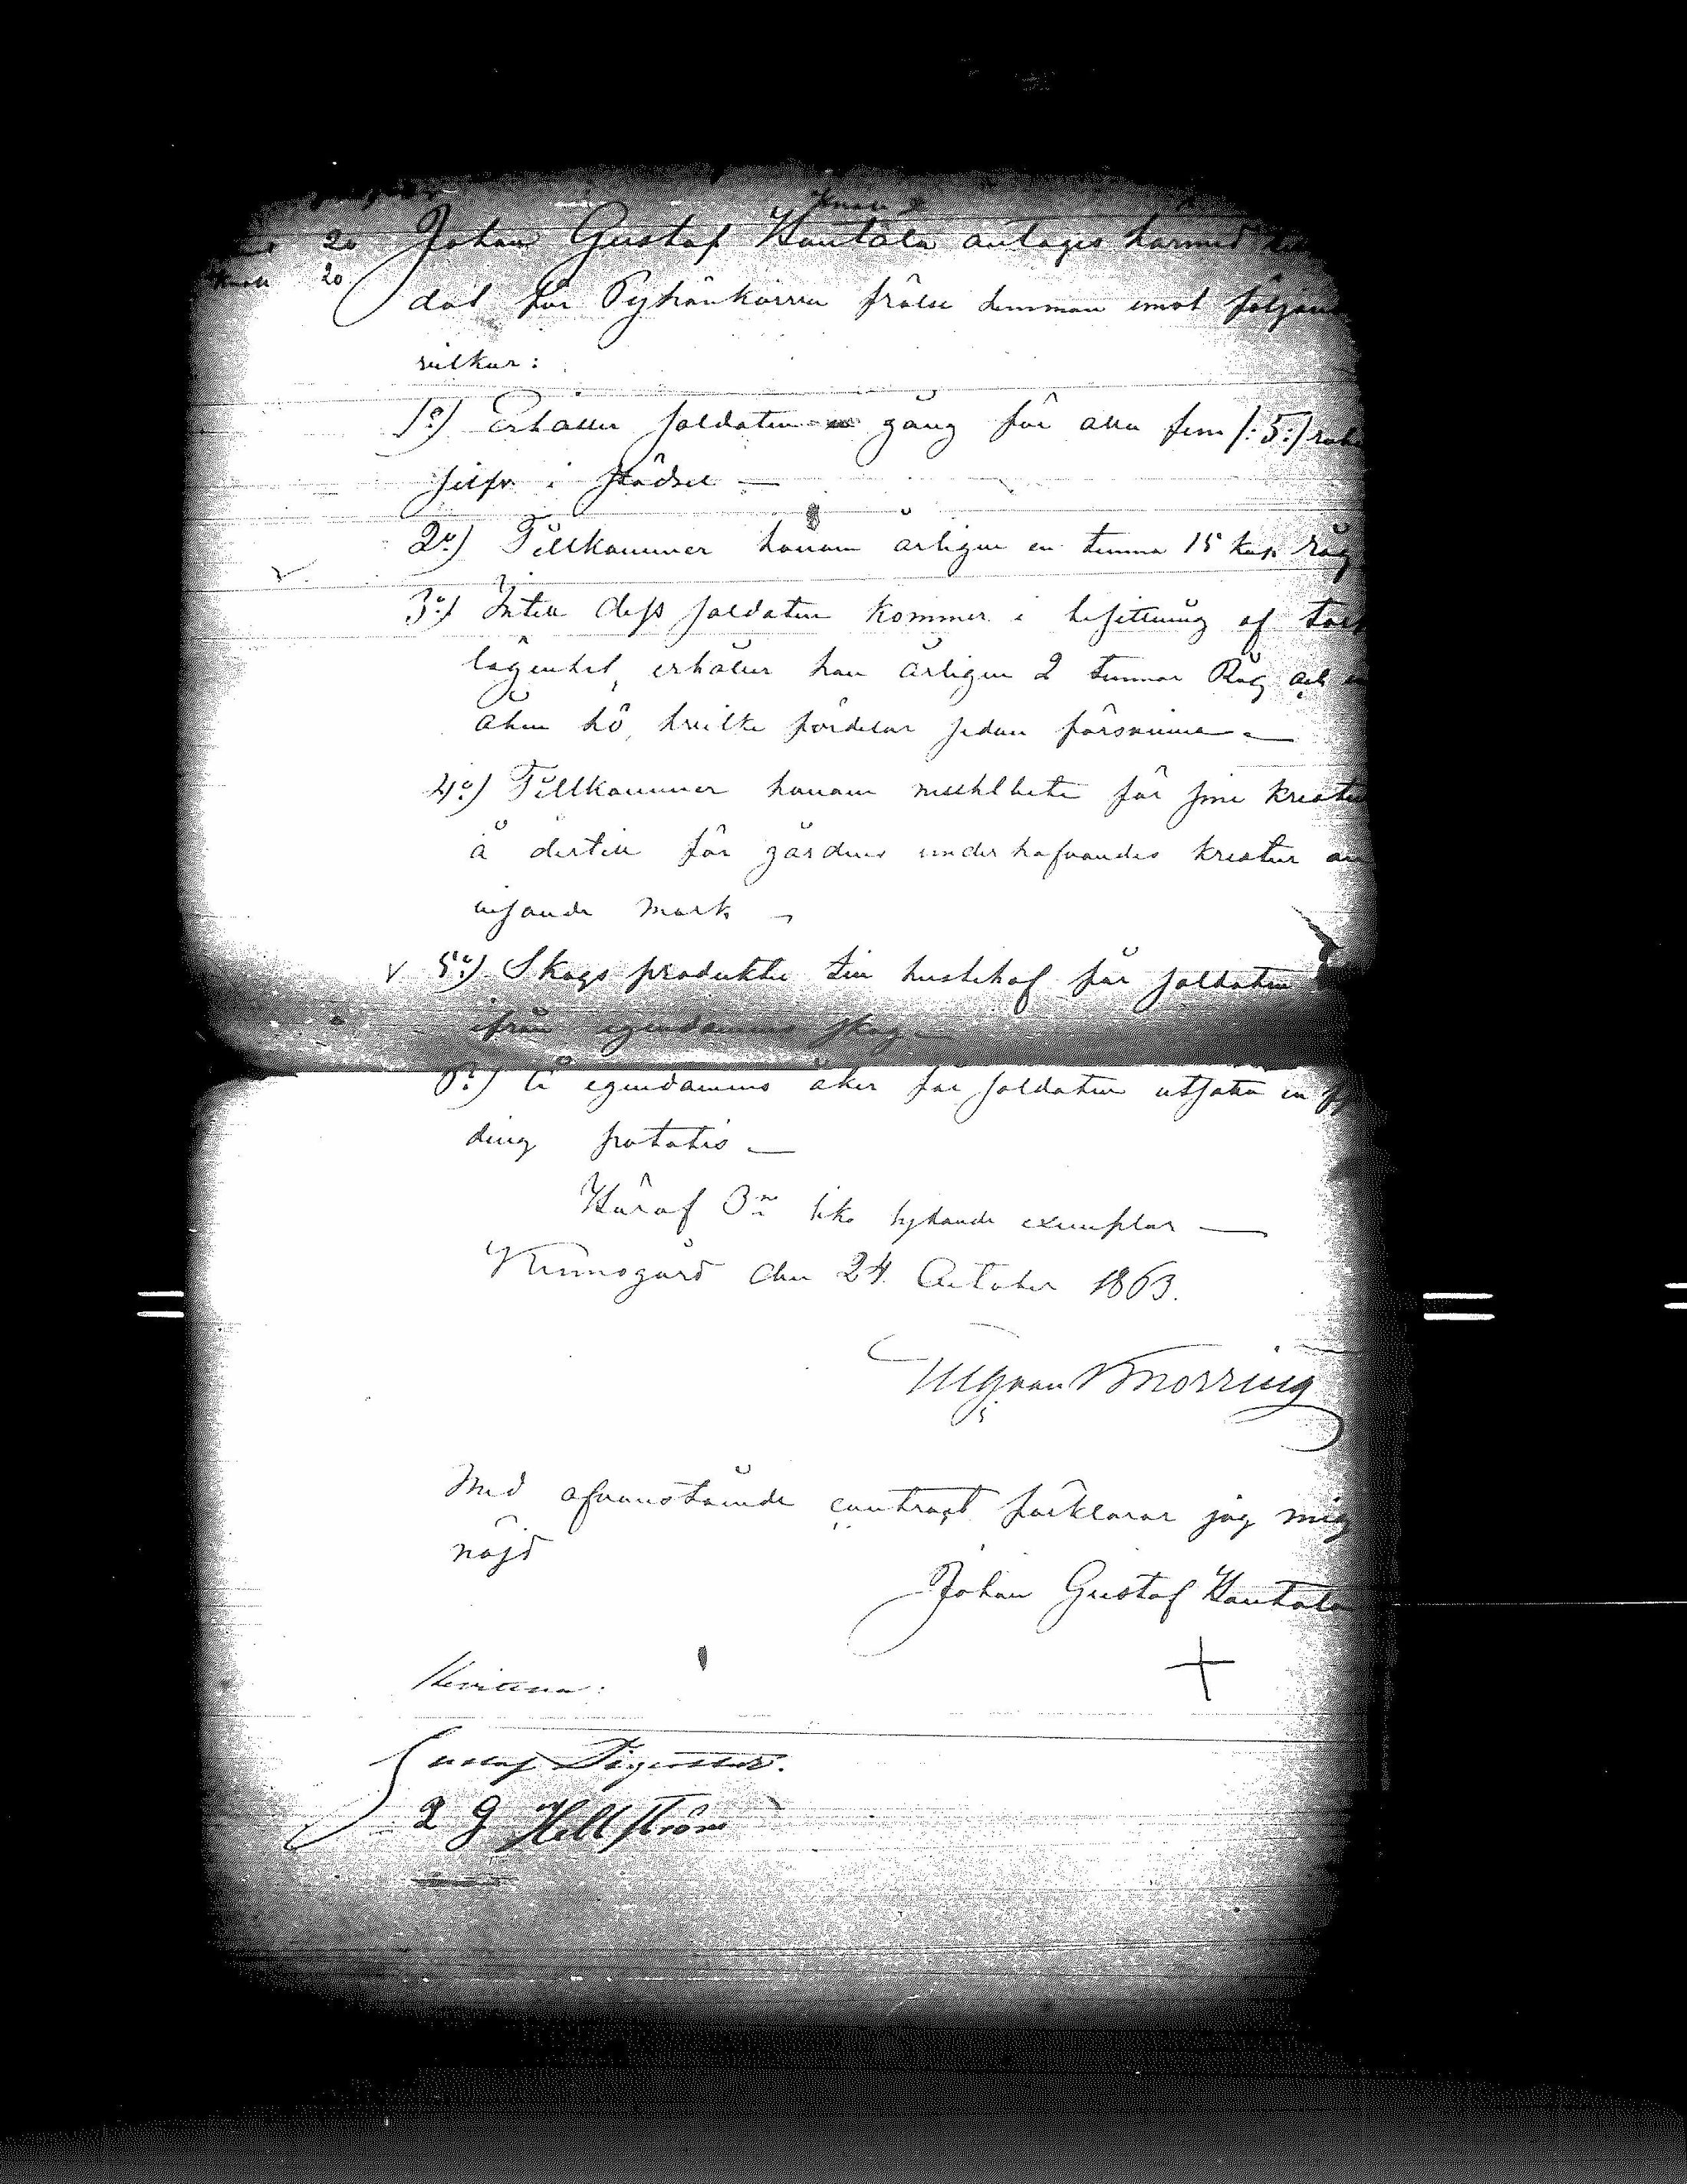 20 Johan Gustaf Hautala antages härmed
20
dat för Pyhänkorva frälse hemman emot följan
vilkor:
1o) Erhåller soldaten en gång för alla fem /:5:/ rub
silfv. i städsel —
2o) Tillkommer honom årligen en tunna 15 kap. Råg
3o) Intill dess soldaten kommer i besittning af torp
lägenhet, erhåller han årligen 2 tunnor Råg och en
åhm hö, hvilke fördelar sedan försvinna —
4o) Tillkommer honom muhlbete för sine kreatur
å dertill för gårdens underhafvandes kreatur an
visande mark —
5o) Skogs produkter till husbehof får soldaten
ifrån egendomens skog —
6o) Å egendomens åker får soldaten utsätta en
ding potatis —
Häraf 3ne lika lydande exemplar —
den 24 October 1863.
von Knorring
Med ofvanstående contract förklarar jag mig
nöjd
Johan Gustaf Hautala
+
Gustaf
Hellström